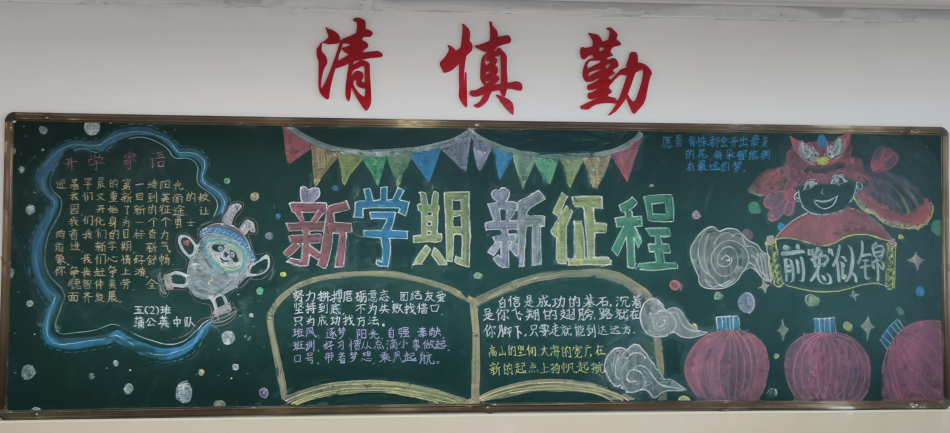 清慎勤
开学寄语
迎着学辰的第一缕阳光
我们又重新回到美丽的校
园，开始了新的征途，让
我们化身为一个个斗
向着目标奋力
前进，新学期新气
象，我们心情舒畅
你争我赶争上游
德智体美劳全
面齐发展
五(2)班
蒲公英中队
新学期 新征程
努力拼搏磨砺意志，团结友爱
坚持到底，不为失败找借口，
只为成功找方法。
班风：逐梦 阳光 自强 奉献
班训：好习惯从点滴小事做起
口号：带着梦想，乘风起航。
自信是成功的基石，沉着
是你飞翔的翅膀，路就在
你脚下，只要走就能到达远方。
高山的坚韧，大海的宽广，在
新的起点上扬帆起航
愿吾 每株
的花，每朵都能拥
有最性的梦。
前兔似锦